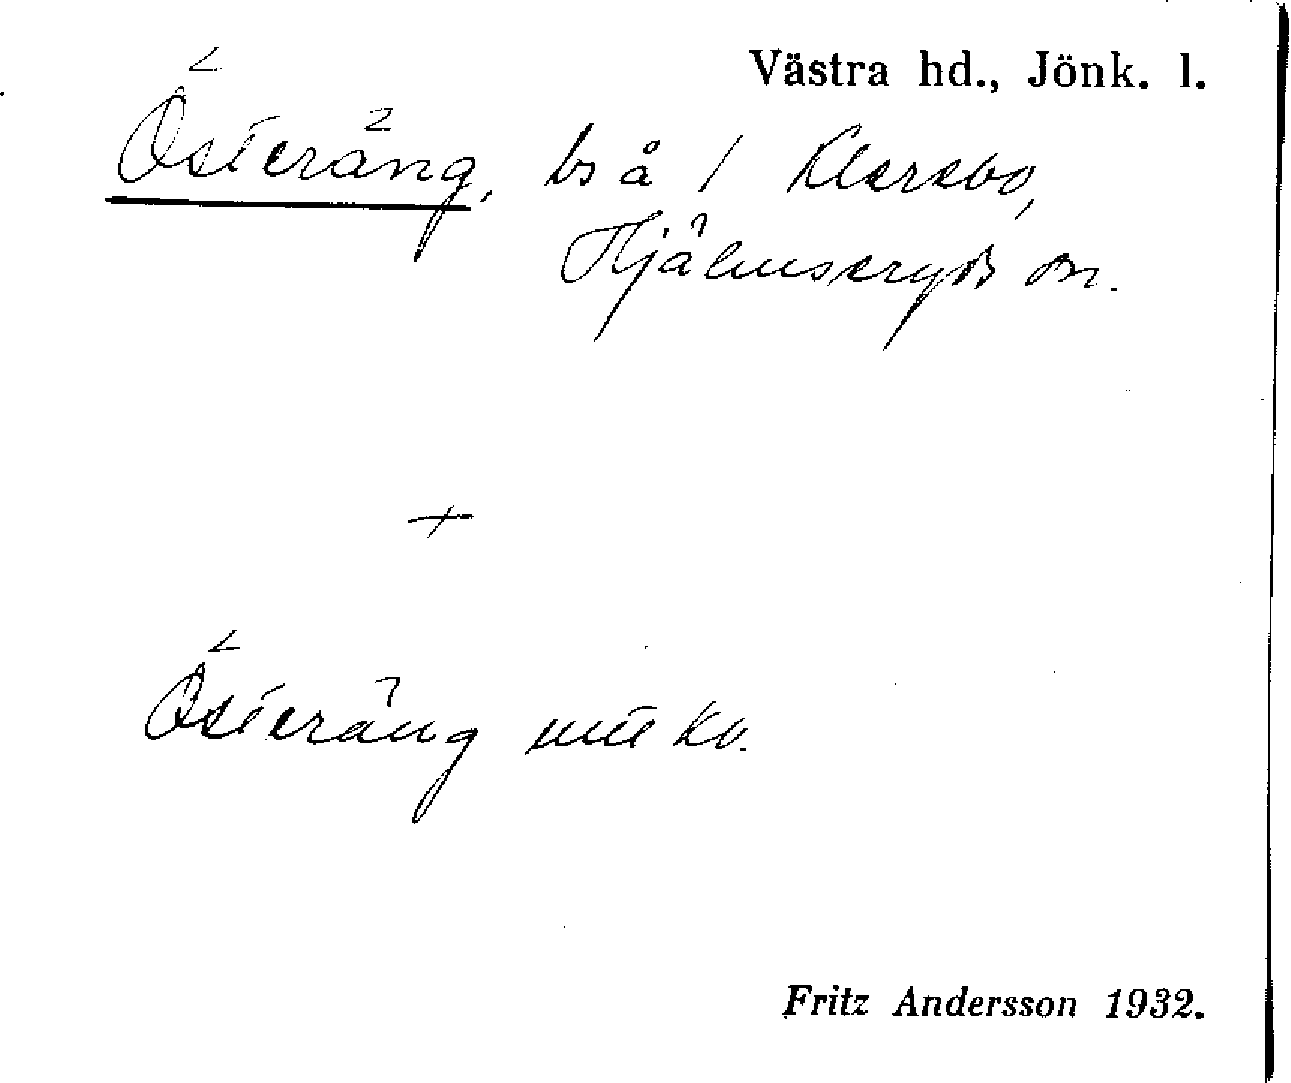 Västra hd., Jönk. l.
Österäng, bs å 1 Klerebo,
Hjälmseryds sn.
+
Österäng mtlkv.
Fritz Andersson 1932.